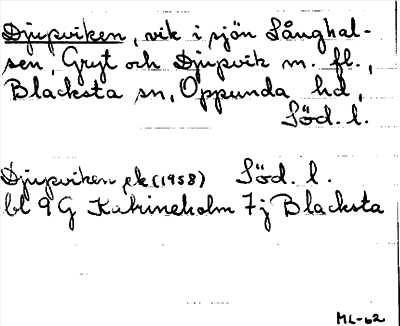 Djupviken, vik i sjön Långhal-
sen, Gryt och Djupvik m. fl.,
Blacksta sn, Oppunda hd,
Söd. l.
Djupviken ek (1958) Söd. l.
bl 9 G Katrineholm 7 j Blacksta
ML-62